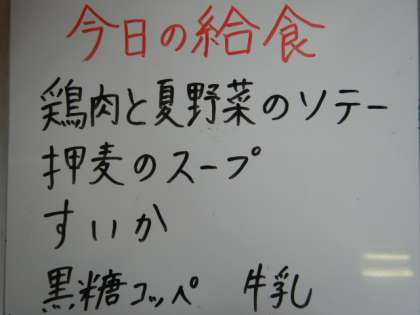 今日の給食
鶏肉と夏野菜のソテー
押麦のスープ
すいか
黒糖コッペ 牛乳